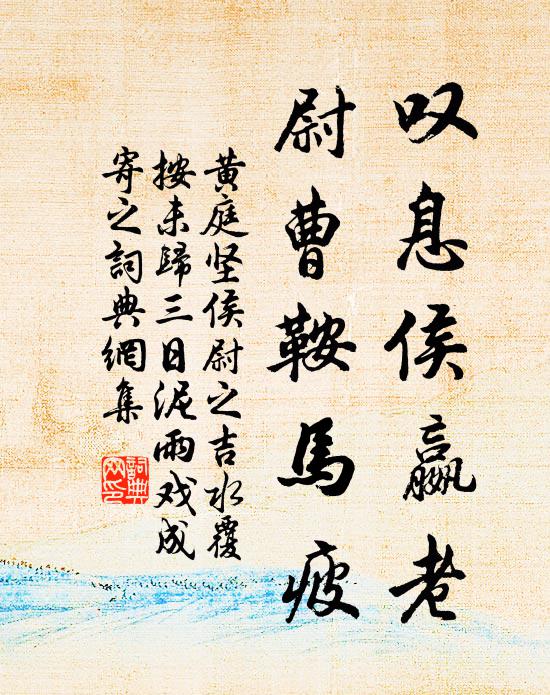 叹息侯嬴老
尉曹鞍馬疲
黄庭坚侯尉之吉水覆
按未歸三日泥雨戏成
寄之詞典網集
詞典
网印